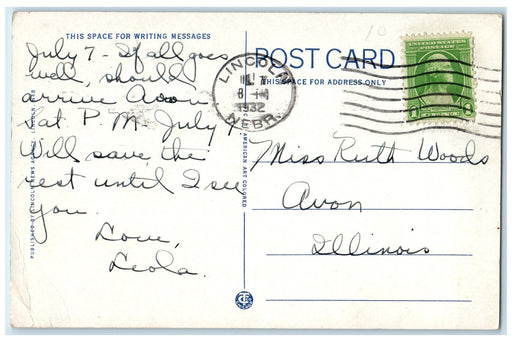 THIS SPACE FOR WRITING MESSAGES
July 7 - If all goes
well, should
arrive Avon
Sat. P.M. July 9.
Will save the
rest until I see
you.
Love,
Leola.
POST CARD
THIS SPACE FOR ADDRESS ONLY
LINCOLN
JUL 7
1932
NEBR.
UNITED STATES
POSTAGE
1
Miss Ruth Woods
Avon
Illinois
PUBLISHED BY LINCOLN NEWS AGENCY, LINCOLN, NEB.
AMERICAN ART COLORED